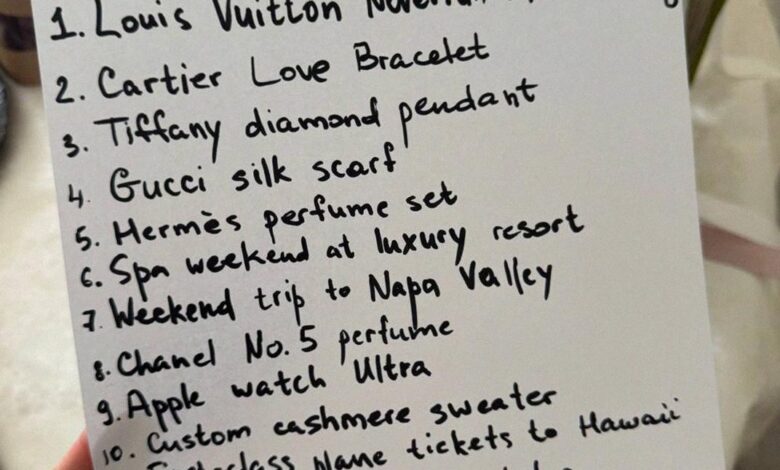 1. Louis Vuitton
2. Cartier Love Bracelet
3. Tiffany diamond pendant
4. Gucci silk scarf
5. Hermès perfume set
6. Spa weekend at luxury resort
7. Weekend trip to Napa Valley
8. Chanel No. 5 perfume
9. Apple watch Ultra
10. Custom cashmere sweater
plane tickets to Hawaii